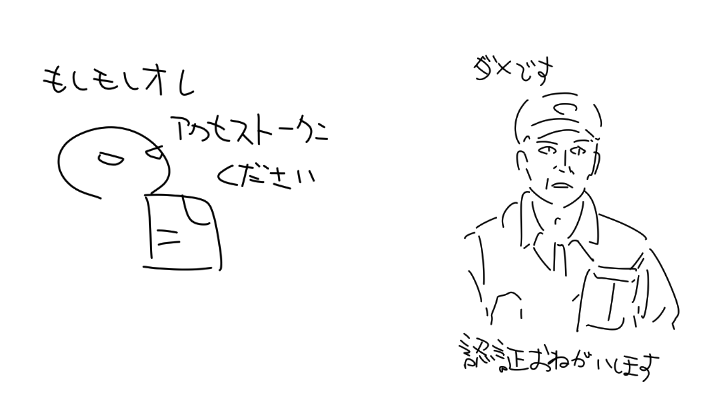 もしもしオレ
アクセストークン
ください
ダメです
認証おねがいします